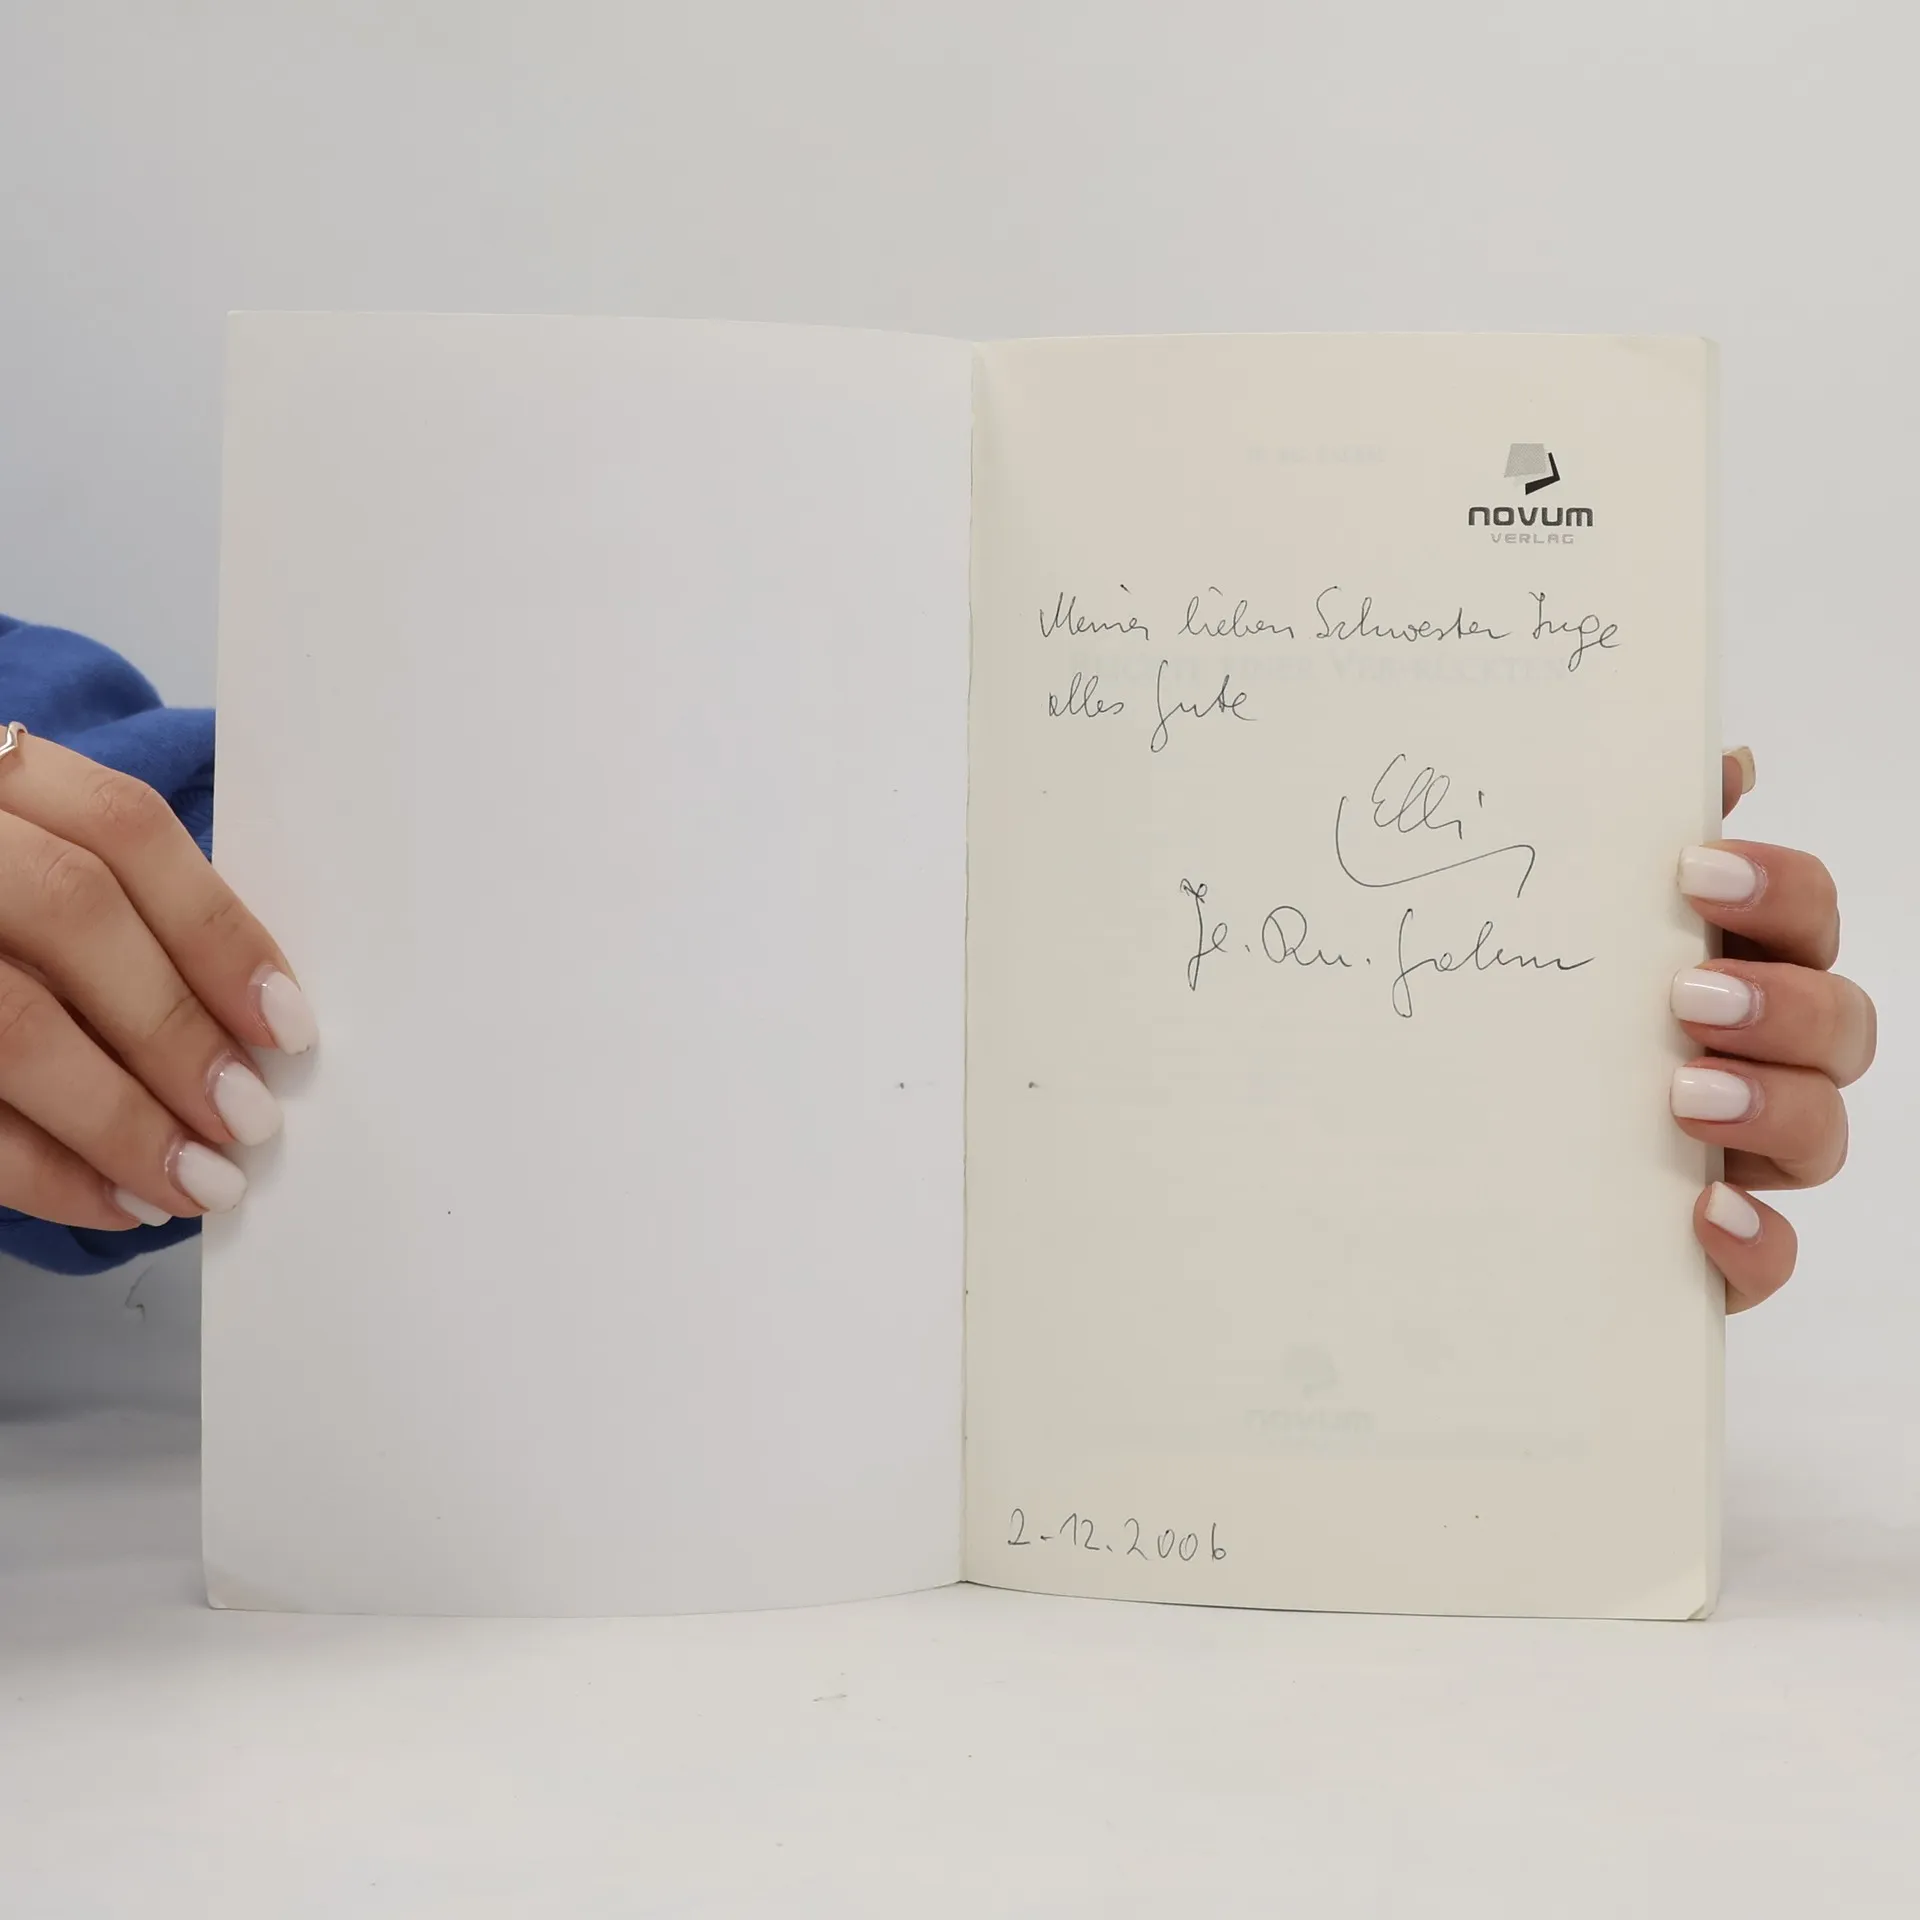 novum
VERLAG
Meiner lieben Schwester Inge
alles Gute
Elli
Je. Ru.
2-12.2006